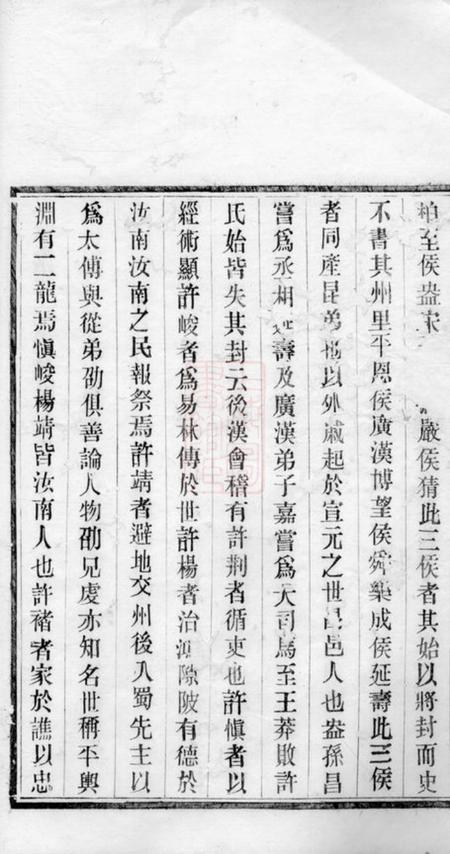 柏至侯盎宋嚴侯猜此三侯者其始以將封而史
不書其州里平恩侯廣漢博望侯舜樂成侯延壽此三侯
者同產昆弟也以外戚起於宣元之世昌邑人也盎孫昌
嘗爲丞相延壽及廣漢弟子嘉嘗爲大司馬至王莽敗許
氏始皆失其封云後漢會稽有許荆者循吏也許慎者以
經術顯許峻者爲易林傳於世許楊者治鴻隙陂有德於
汝南汝南之民報祭焉許靖者避地交州後入蜀先主以
爲太傅與從弟劭俱善論人物劭兄虔亦知名世稱平輿
淵有二龍焉愼峻楊靖皆汝南人也許褚者家於譙以忠